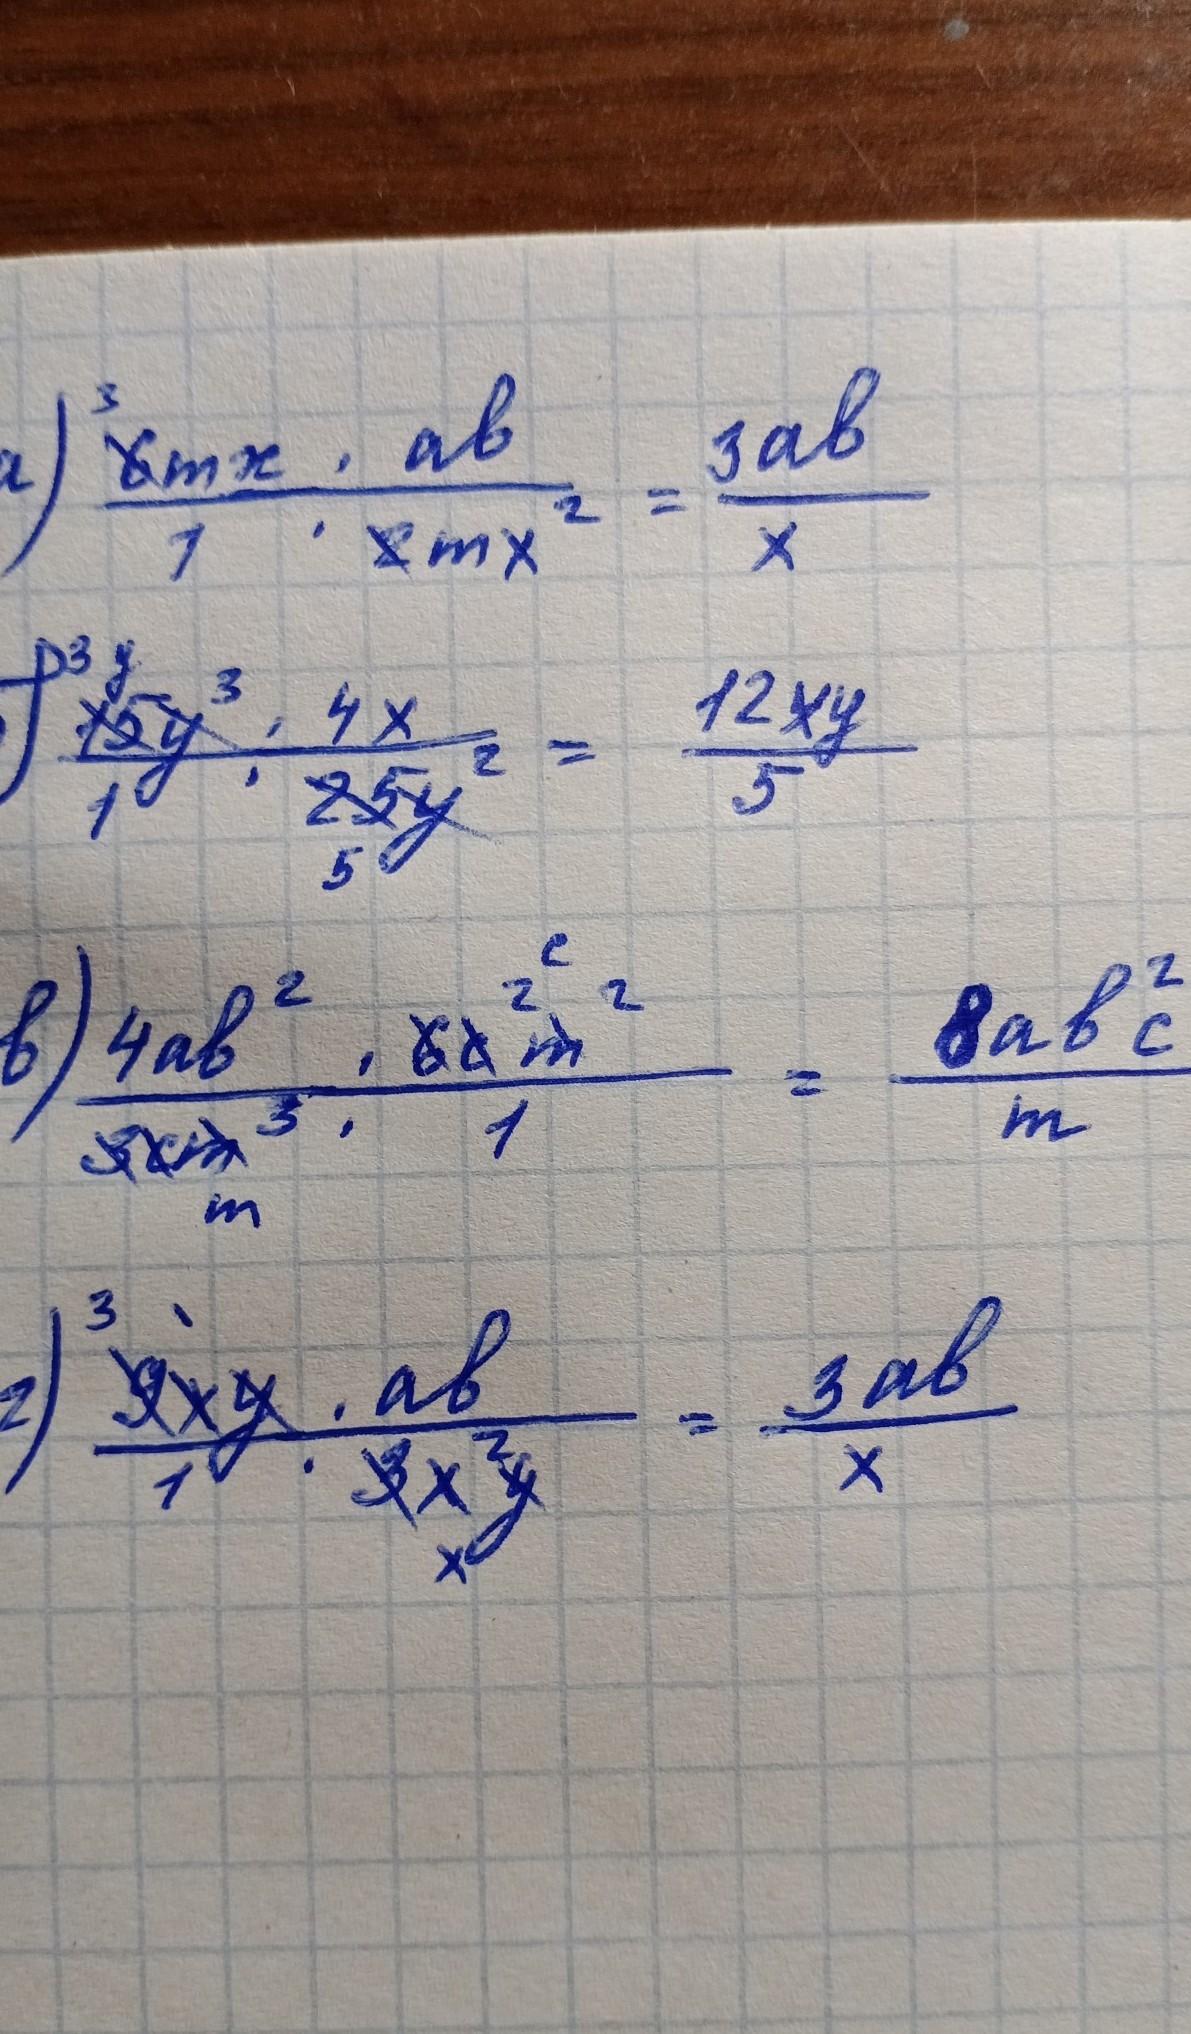 а) ³6mx · ab / 1 · 2mx² = 3ab / x
3 y
15y³ · 4x / 1 · 25y² = 12xy / 5
5
c
2
в) 4ab² · 6c²m² / 3cm³ · 1 = 8ab²c / m
m
3
г) 9xy · ab / 1 · 3x²y = 3ab / x
x